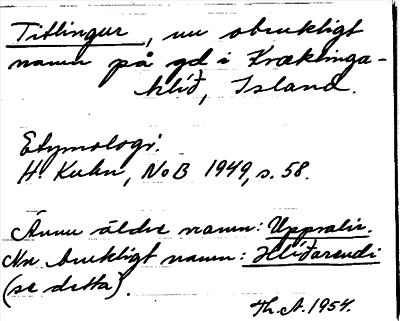 Titlingur, nu obrukligt
namn på gd i Kræklinga-
hlíð, Island.
Etymologi:
H. Kuhn, NoB 1949, s. 58.
Ännu äldre namn: Uppsalir.
Nu brukligt namn: Hlíðarendi
(se detta).
Th. A. 1954.